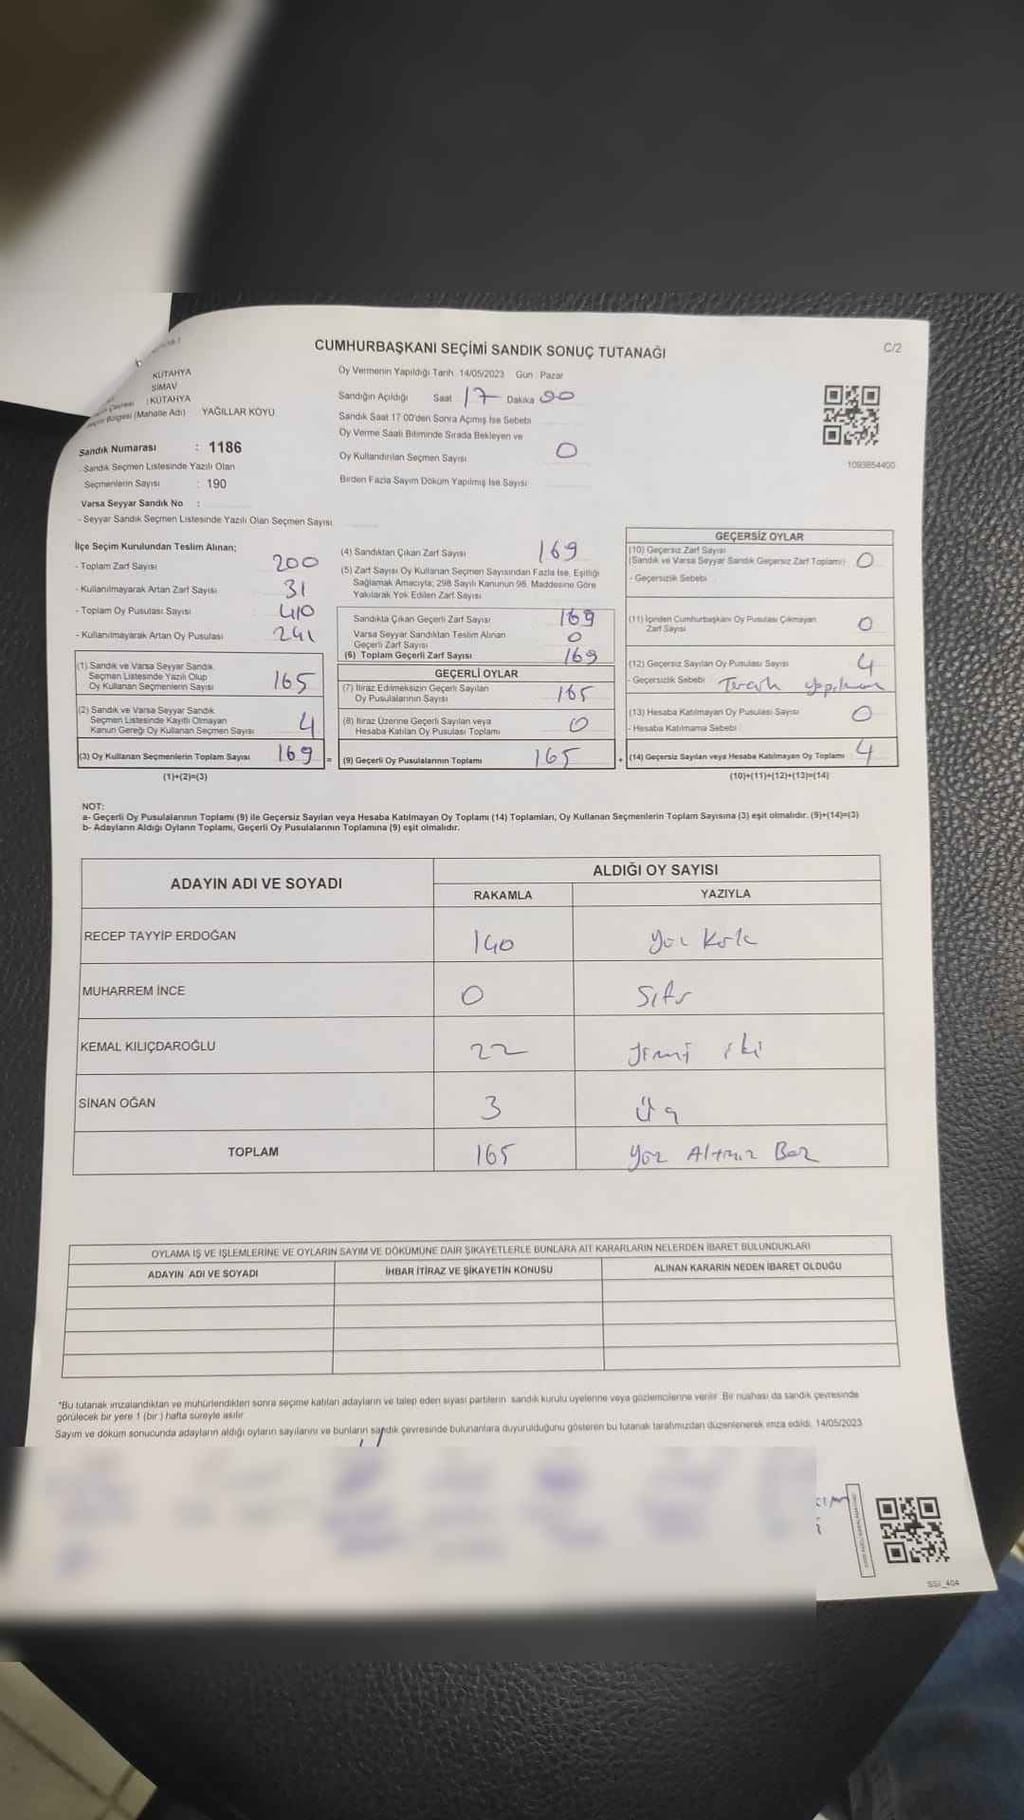 CUMHURBAŞKANI SEÇİMİ SANDIK SONUÇ TUTANAĞI
C/2
KÜTAHYA
SİMAV
: KÜTAHYA
Seçim Bölgesi (Mahalle Adı) YAĞILLAR KÖYÜ
Sandık Numarası : 1186
Sandık Seçmen Listesinde Yazılı Olan
Seçmenlerin Sayısı : 190
Varsa Seyyar Sandık No :
- Seyyar Sandık Seçmen Listesinde Yazılı Olan Seçmen Sayısı
Oy Vermenin Yapıldığı Tarih 14/05/2023 Gün Pazar
Sandığın Açıldığı Saat 17 Dakika 00
Sandık Saat 17 00'den Sonra Açımış İse Sebebi
Oy Verme Saati Bitiminde Sırada Bekleyen ve
Oy Kullandırılan Seçmen Sayısı 0
Birden Fazla Sayım Döküm Yapılmış İse Sayısı
1093854400
İlçe Seçim Kurulundan Teslim Alınan;
- Toplam Zarf Sayısı 200
- Kullanılmayarak Artan Zarf Sayısı 31
- Toplam Oy Pusulası Sayısı 410
- Kullanılmayarak Artan Oy Pusulası 241
(1) Sandık ve Varsa Seyyar Sandık
Seçmen Listesinde Yazılı Olup
Oy Kullanan Seçmenlerin Sayısı 165
(2) Sandık ve Varsa Seyyar Sandık
Seçmen Listesinde Kayıtlı Olmayan
Kanun Gereği Oy Kullanan Seçmen Sayısı 4
(3) Oy Kullanan Seçmenlerin Toplam Sayısı 169 =
(1)+(2)=(3)
(4) Sandıktan Çıkan Zarf Sayısı 169
(5) Zarf Sayısı Oy Kullanan Seçmen Sayısından Fazla İse, Eşitliği
Sağlamak Amacıyla; 298 Sayılı Kanunun 98. Maddesine Göre
Yakılarak Yok Edilen Zarf Sayısı
Sandıkta Çıkan Geçerli Zarf Sayısı 169
Varsa Seyyar Sandıktan Teslim Alınan
Geçerli Zarf Sayısı 0
(6) Toplam Geçerli Zarf Sayısı 169
GEÇERLİ OYLAR
(7) İtiraz Edilmeksizin Geçerli Sayılan
Oy Pusulalarının Sayısı 165
(8) İtiraz Üzerine Geçerli Sayılan veya
Hesaba Katılan Oy Pusulası Toplamı 0
(9) Geçerli Oy Pusulalarının Toplamı 165 +
GEÇERSİZ OYLAR
(10) Geçersiz Zarf Sayısı
(Sandık ve Varsa Seyyar Sandık Geçersiz Zarf Toplamı) 0
- Geçersizlik Sebebi
(11) İçinden Cumhurbaşkanı Oy Pusulası Çıkmayan
Zarf Sayısı 0
(12) Geçersiz Sayılan Oy Pusulası Sayısı 4
- Geçersizlik Sebebi
(13) Hesaba Katılmayan Oy Pusulası Sayısı 0
- Hesaba Katılmama Sebebi
(14) Geçersiz Sayılan veya Hesaba Katılmayan Oy Toplamı 4
(10)+(11)+(12)+(13)=(14)
NOT:
a- Geçerli Oy Pusulalarının Toplamı (9) ile Geçersiz Sayılan veya Hesaba Katılmayan Oy Toplamı (14) Toplamları, Oy Kullanan Seçmenlerin Toplam Sayısına (3) eşit olmalıdır. (9)+(14)=(3)
b- Adayların Aldığı Oyların Toplamı, Geçerli Oy Pusulalarının Toplamına (9) eşit olmalıdır.
ADAYIN ADI VE SOYADI
ALDIĞI OY SAYISI
RAKAMLA YAZIYLA
RECEP TAYYİP ERDOĞAN 140 yüz kırk
MUHARREM İNCE 0 Sıfır
KEMAL KILIÇDAROĞLU 22 yirmi iki
SİNAN OĞAN 3 Üç
TOPLAM 165 yüz Altmış Beş
OYLAMA İŞ VE İŞLEMLERİNE VE OYLARIN SAYIM VE DÖKÜMÜNE DAİR ŞİKAYETLERLE BUNLARA AİT KARARLARIN NELERDEN İBARET BULUNDUKLARI
ADAYIN ADI VE SOYADI İHBAR İTİRAZ VE ŞİKAYETİN KONUSU ALINAN KARARIN NEDEN İBARET OLDUĞU
*Bu tutanak imzalandıktan ve mühürlendikten sonra seçime katılan adayların ve talep eden siyasi partilerin sandık kurulu üyelerine veya gözlemcilerine verilir. Bir nüshası da sandık çevresinde
görülecek bir yere 1 (bir) hafta süreyle asılır
Sayım ve döküm sonucunda adayların aldığı oyların sayılarını ve bunların sandık çevresinde bulunanlara duyurulduğunu gösteren bu tutanak tarafımızdan düzenlenerek imza edildi. 14/05/2023
SSI_404